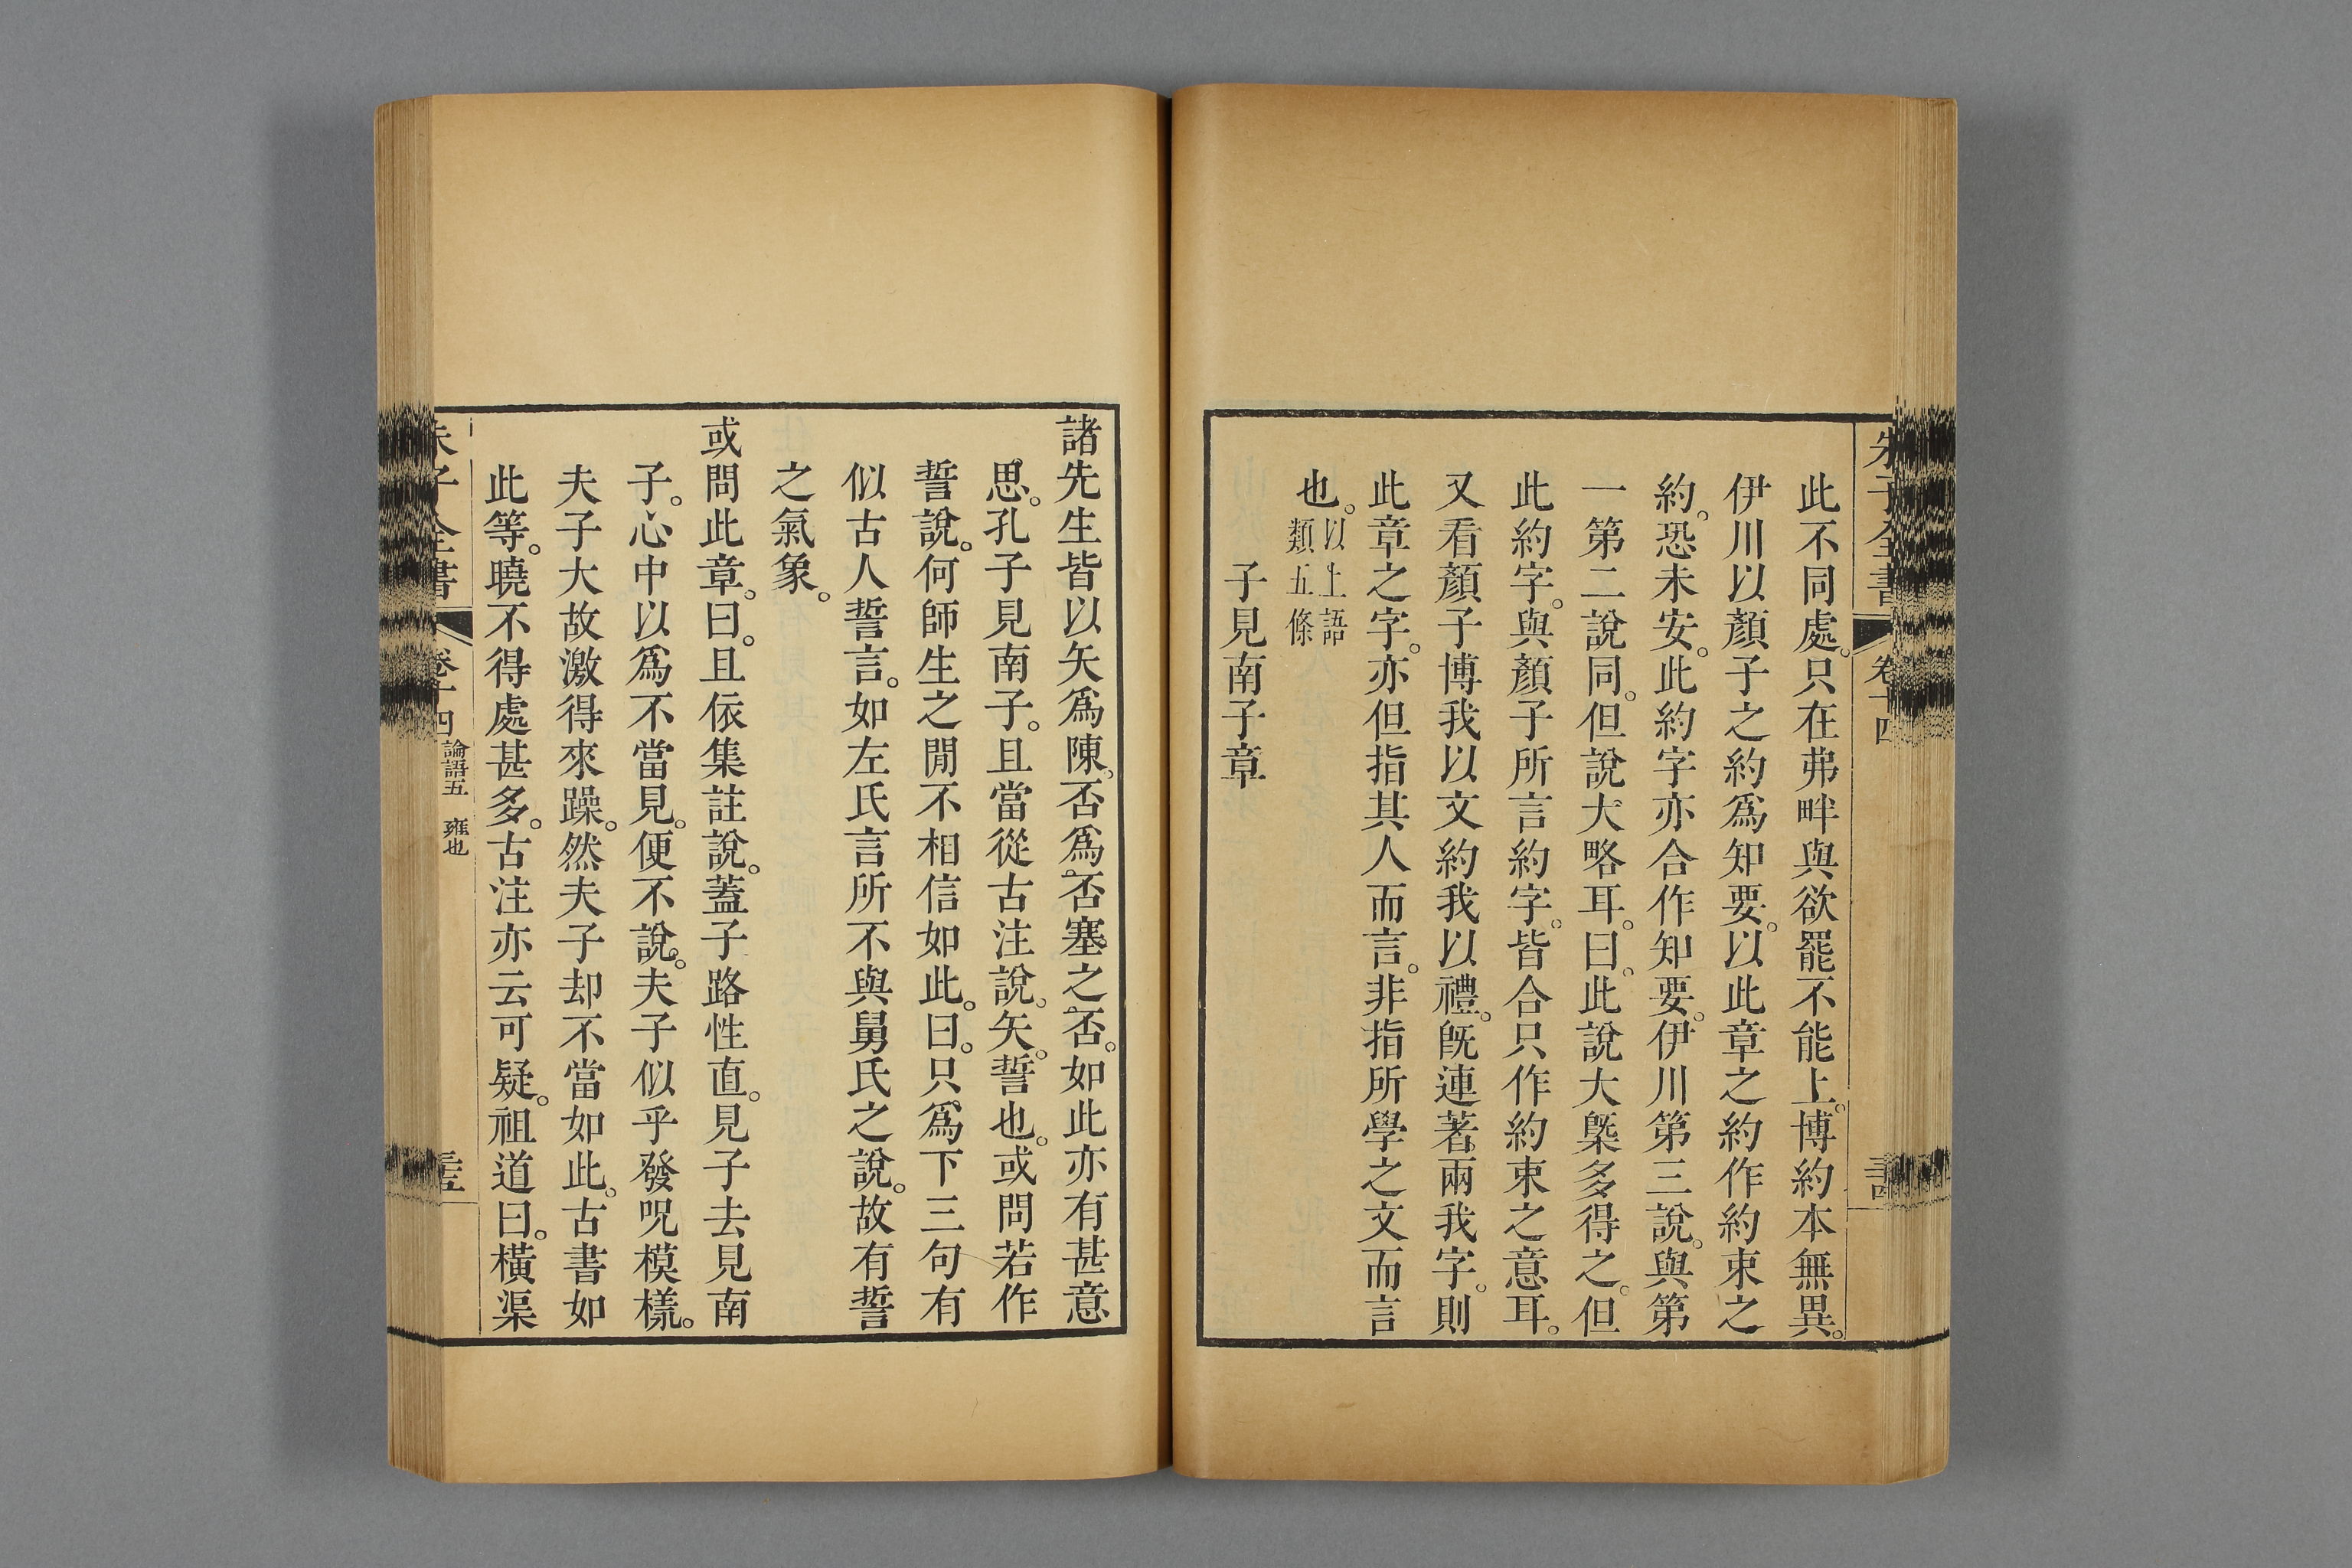 朱子全書 卷十四
此不同處。只在弗畔與欲罷不能上。博約本無異。
伊川以顏子之約爲知要。以此章之約作約束之
約。恐未安。此約字亦合作知要。伊川第三說。與第
一第二說同。但說大略耳。曰。此說大槩多得之。但
此約字。與顏子所言約字。皆合只作約束之意耳。
又看顏子博我以文約我以禮。旣連著兩我字。則
此章之字。亦但指其人而言。非指所學之文而言
也。以上語類五條
子見南子章
諸先生皆以矢爲陳。否爲否塞之否。如此亦有甚意
思。孔子見南子。且當從古注說。矢。誓也。或問若作
誓說。何師生之閒不相信如此。曰。只爲下三句有
似古人誓言。如左氏言所不與舅氏之說。故有誓
之氣象。
或問此章。曰。且依集註說。蓋子路性直。見子去見南
子。心中以爲不當見。便不說。夫子似乎發呪模樣。
夫子大故激得來躁。然夫子却不當如此。古書如
此等。曉不得處甚多。古注亦云可疑。祖道曰。橫渠
朱子全書 卷十四 論語五 雍也